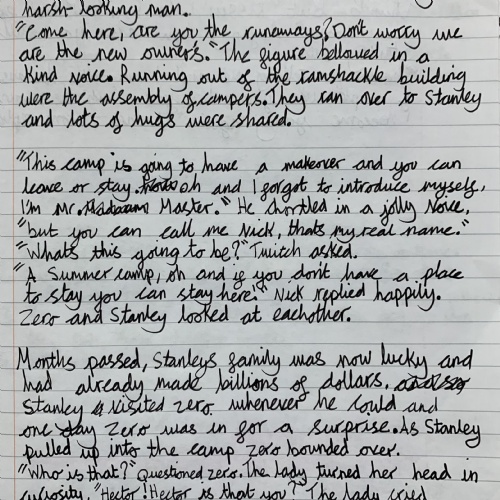 harsh looking man.
"Come here, are you the runaways? Don't worry we
are the new owner's." The figure bellowed in a
kind voice. Running out of the ramshackle building
were the assembly of campers. They ran over to Stanley
and lots of hugs were shared.
"This camp is going to have a makeover and you can
leave or stay. oh and I forgot to introduce myself,
I'm Mr. Master." He chortled in a jolly voice,
"but you can call me Nick, thats my real name."
"Whats this going to be?" Twitch asked.
"A Summer camp, oh and if you don't have a place
to stay you can stay here." Nick replied happily.
Zero and Stanley looked at eachother.
Months passed, Stanleys family was now lucky and
had already made billions of dollars.
Stanley visited zero whenever he could and
one day Zero was in for a surprise. As Stanley
pulled up into the camp Zero bounded over.
"Who is that?" Questioned zero. The lady turned her head in
curiosity, "Hector! Hector is that you?" The lady cried